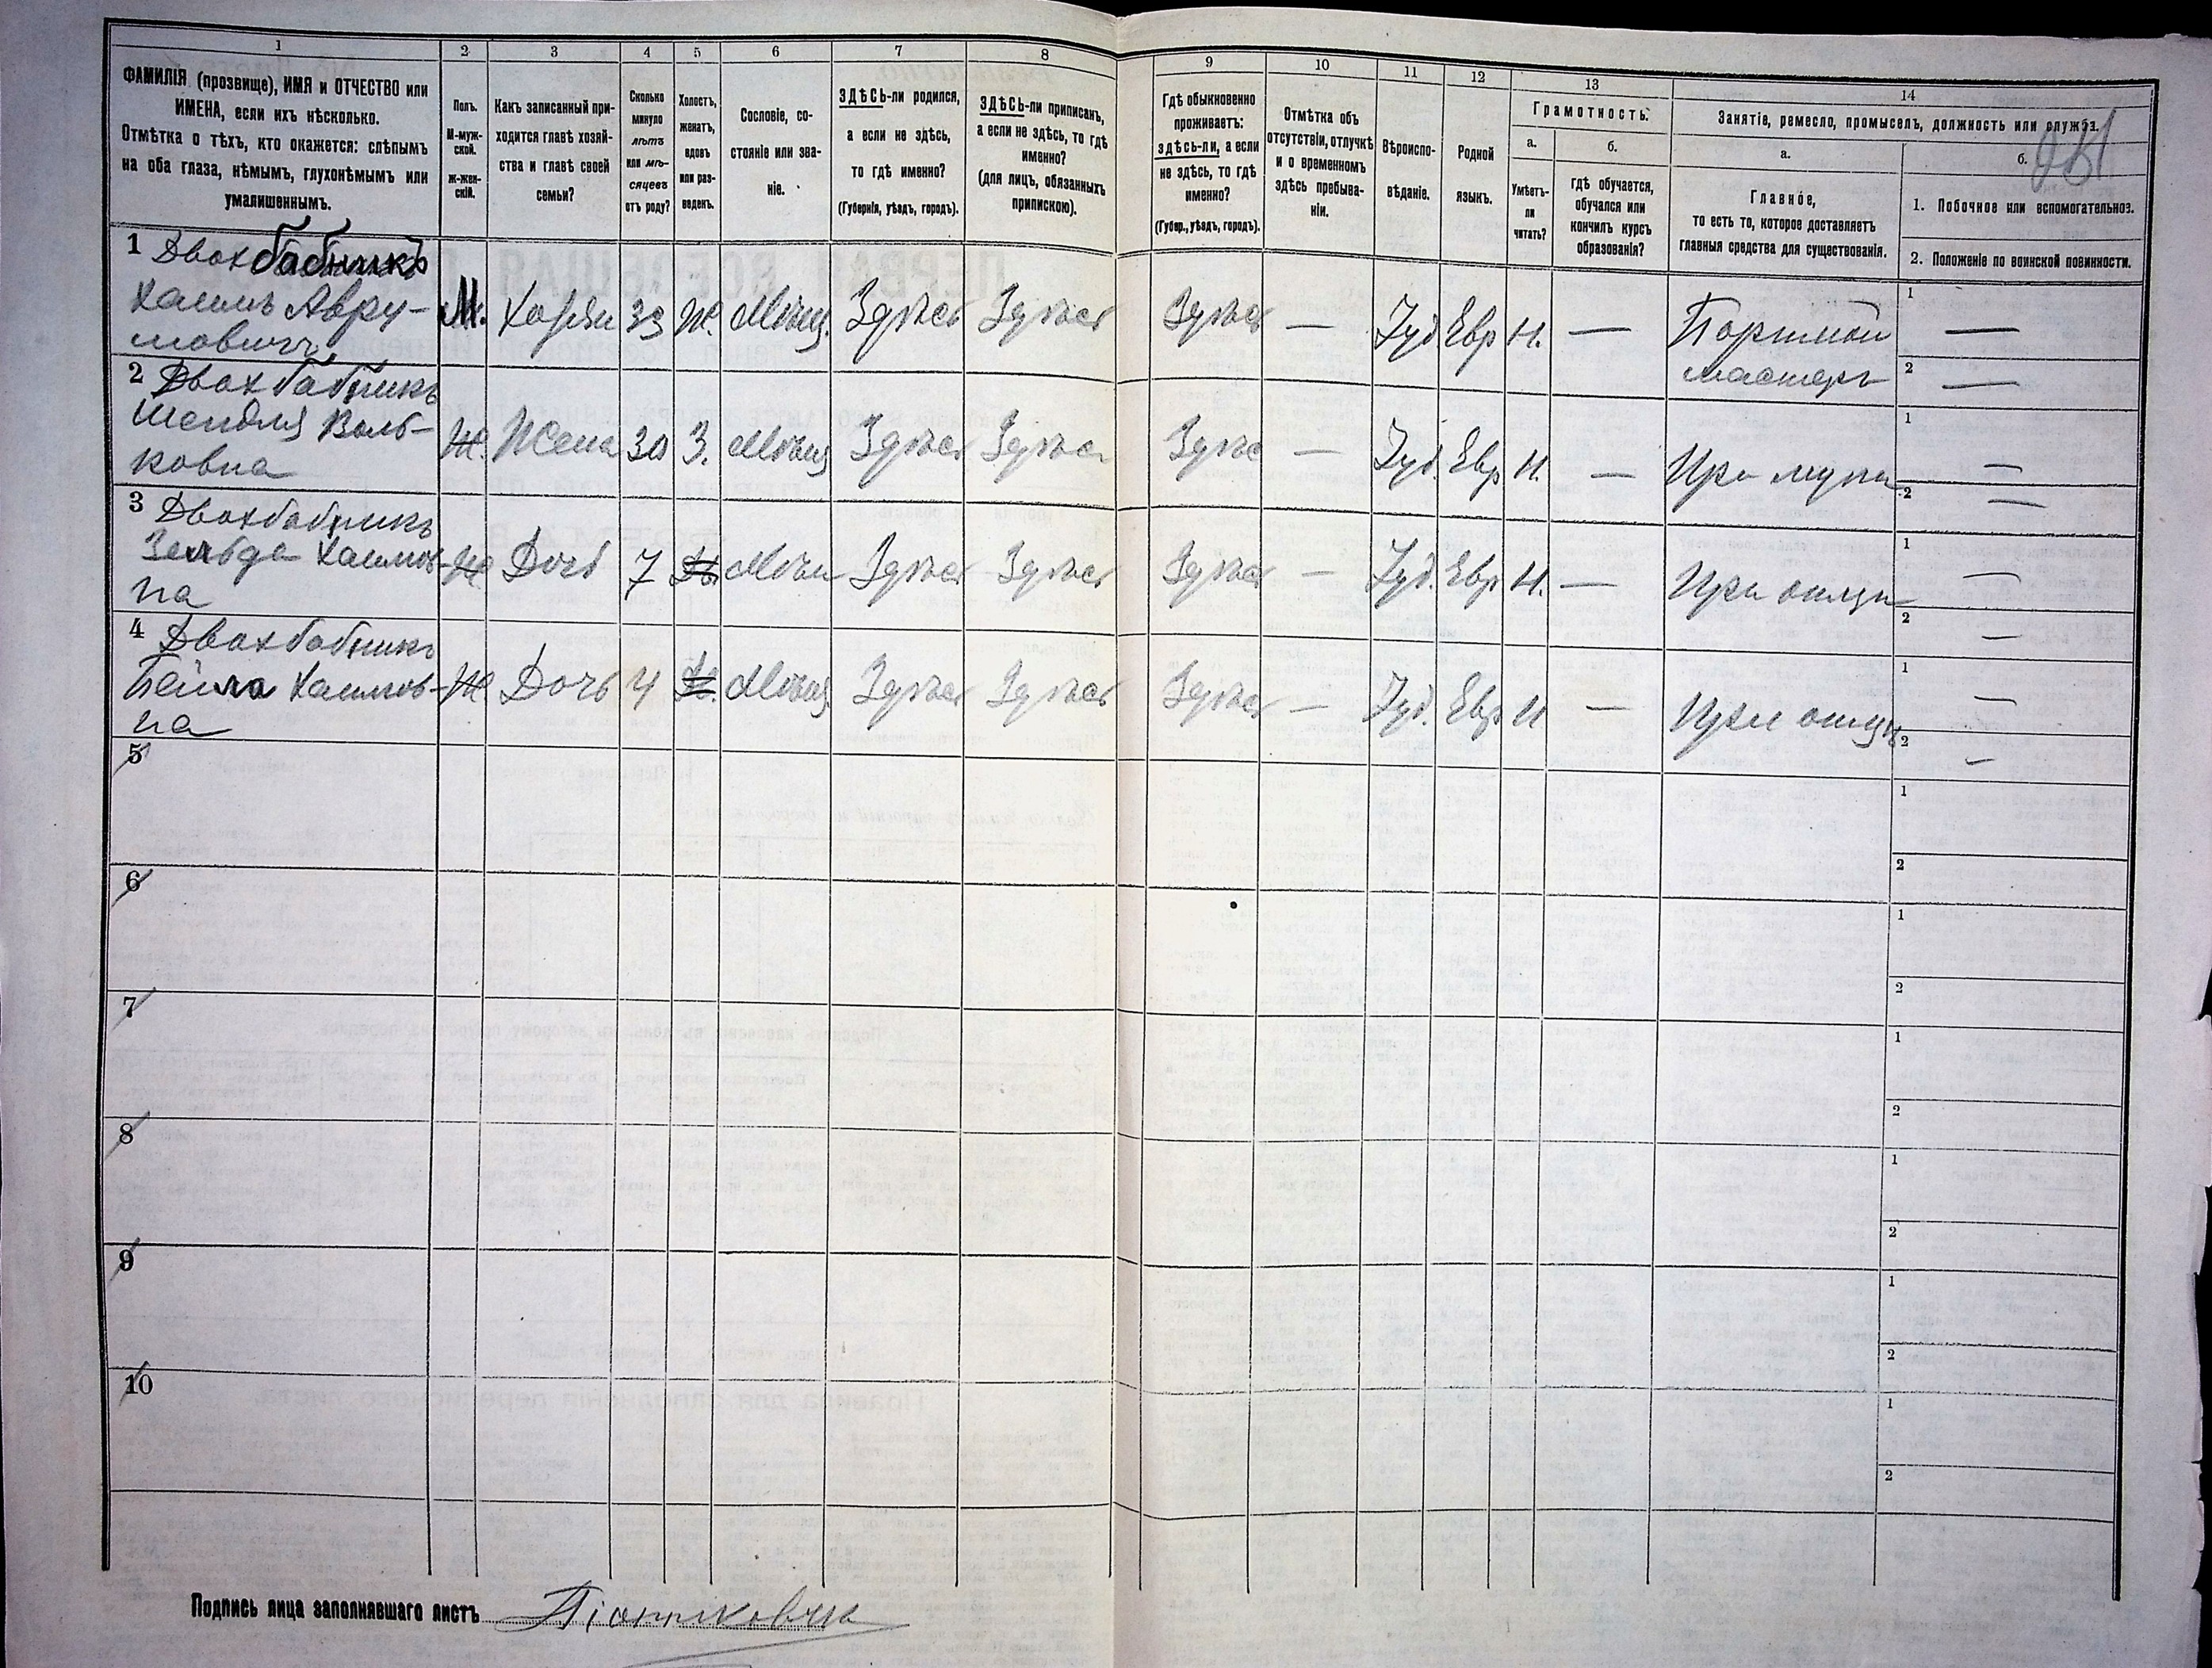 1
2
3
4
5
6
7
8
9
10
11
12
13
14
ФАМИЛІЯ (прозвище), ИМЯ и ОТЧЕСТВО или
ИМЕНА, если ихъ нѣсколько.
Отмѣтка о тѣхъ, кто окажется: слѣпымъ
на оба глаза, нѣмымъ, глухонѣмымъ или
умалишеннымъ.
Полъ.
М-муж-
ской.
Ж-жен-
скій.
Какъ записанный при-
ходится главѣ хозяй-
ства и главѣ своей
семьи?
Сколько
минуло
лѣтъ
или мѣ-
сяцевъ
отъ роду?
Холостъ,
женатъ,
вдовъ
или раз-
веденъ.
Сословіе, со-
стояніе или зва-
ніе.
ЗДѢСЬ-ли родился,
а если не здѣсь,
то гдѣ именно?
(Губернія, уѣздъ, городъ).
ЗДѢСЬ-ли приписанъ,
а если не здѣсь, то гдѣ
именно?
(для лицъ, обязанныхъ
припискою).
Гдѣ обыкновенно
проживаетъ:
здѣсь-ли, а если
не здѣсь, то гдѣ
именно?
(Губер., уѣздъ, городъ).
Отмѣтка объ
отсутствіи, отлучкѣ
и о временномъ
здѣсь пребыва-
ніи.
Вѣроиспо-
вѣданіе.
Родной
языкъ.
Грамотность.
а.
Умѣетъ-
ли
читать?
б.
гдѣ обучается,
обучался или
кончилъ курсъ
образованія?
Занятіе, ремесло, промыселъ, должность или служба.
а.
Главное,
то есть то, которое доставляетъ
главныя средства для существованія.
б.
1. Побочное или вспомогательное.
2. Положеніе по воинской повинности.
1 Двохбабникъ
Хаимъ Авру-
мовичъ
М. Хозяи 33 Ж. Мѣщ. Здѣсь Здѣсь Здѣсь — Іуд Евр Н. — Портной
мастеръ
1 —
2 —
2 Двохбабникъ
Шендля Воль-
ковна
Ж. Жена 30 З. Мѣщ Здѣсь Здѣсь Здѣс — Іуд. Евр Н. — При мужѣ
1 —
2 —
3 Двохбабникъ
Зельда Хаимов-
на
Ж Дочь 7 Дѣ Мѣщ Здѣсь Здѣсь Здѣсь — Іуд. Евр Н. — При отцѣ
1 —
2 —
4 Двохбабникъ
Бейла Хаимов-
на
Ж. Дочь 4 Дѣ. Мѣщ. Здѣсь Здѣсь Здѣсь — Іуд. Евр Н — При отцѣ
1 —
2 —
5
1
2
6
1
2
7
1
2
8
1
2
9
1
2
10
1
2
Подпись лица заполнявшаго листъ